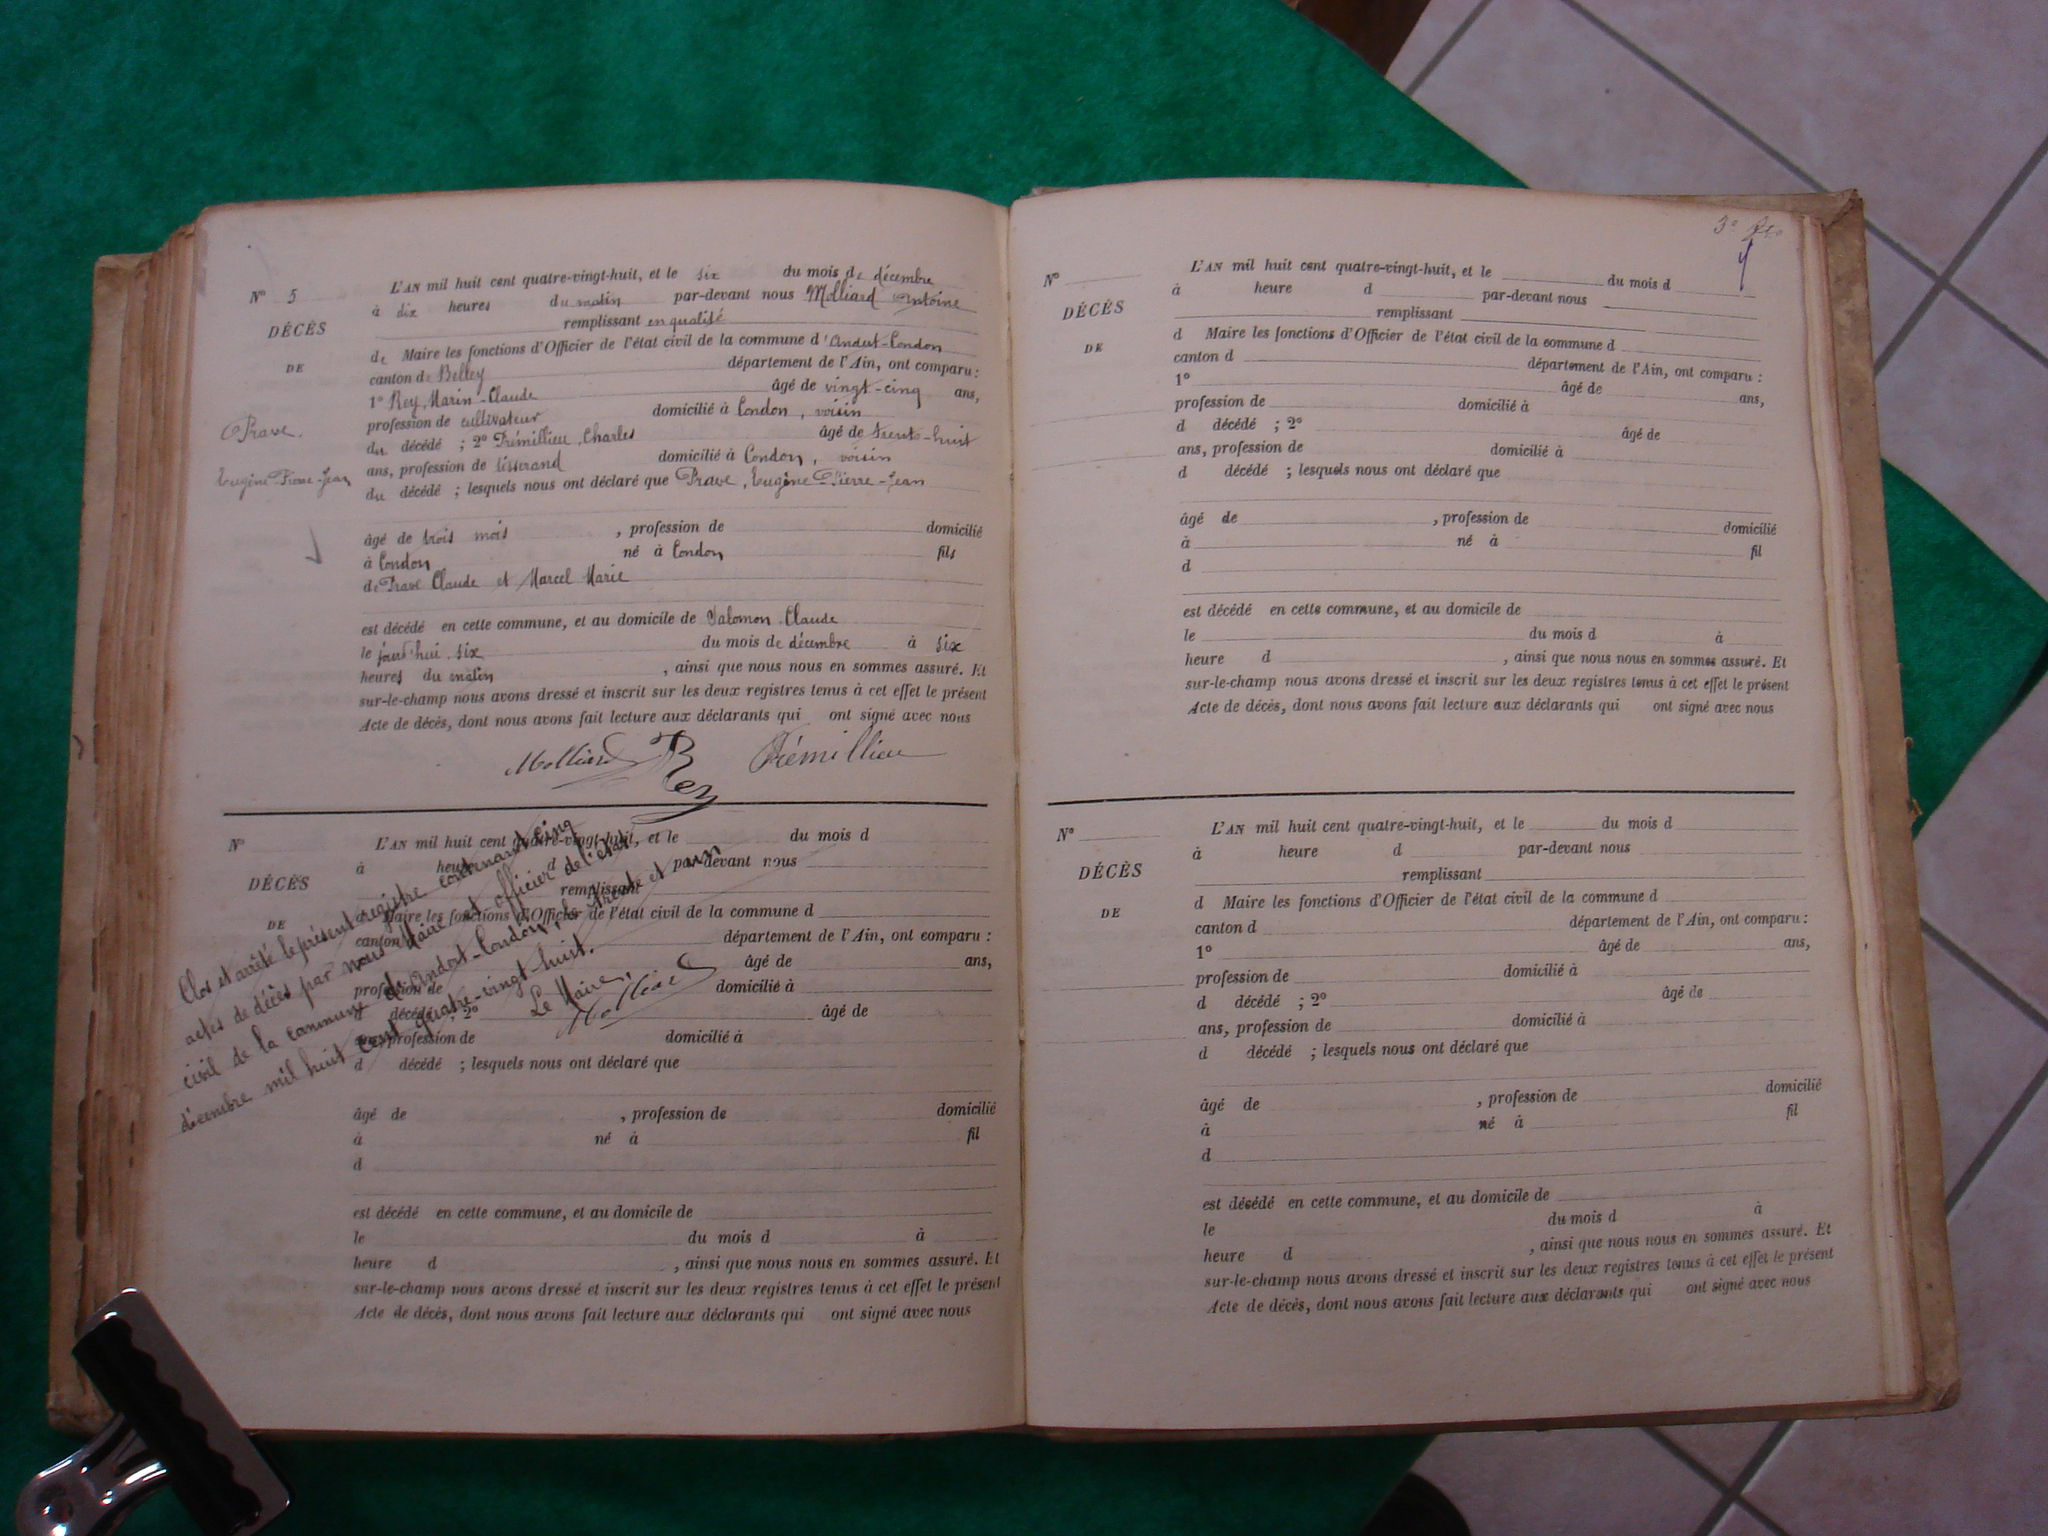 N° 5
DÉCÈS
DE
Prave.
Eugène Pierre-Jean
L'AN mil huit cent quatre-vingt-huit, et le six du mois de décembre
à dix heures du matin par-devant nous Molliard Antoine
remplissant en qualité
de Maire les fonctions d'Officier de l'état civil de la commune d'Andert-Condon
canton de Belley département de l'Ain, ont comparu :
1° Rey, Marin-Claude âgé de vingt-cinq ans,
profession de cultivateur domicilié à Condon, voisin
du décédé ; 2° Trémillieu, Charles âgé de trente-huit
ans, profession de tisserand domicilié à Condon, voisin
du décédé ; lesquels nous ont déclaré que Prave, Eugène Pierre-Jean
âgé de trois mois , profession de domicilié
à Condon né à Condon fils
de Prave Claude et Marcel Marie
est décédé en cette commune, et au domicile de Salomon Claude
le jourd'hui, six du mois de décembre à six
heures du matin , ainsi que nous nous en sommes assuré. Et
sur-le-champ nous avons dressé et inscrit sur les deux registres tenus à cet effet le présent
Acte de décès, dont nous avons fait lecture aux déclarants qui ont signé avec nous
Molliard Rey Trémillieu
N°
DÉCÈS
DE
L'AN mil huit cent quatre-vingt-huit, et le du mois d
à heure d par-devant nous
remplissant
d Maire les fonctions d'Officier de l'état civil de la commune d
canton d département de l'Ain, ont comparu :
âgé de ans,
profession de domicilié à
d décédé ; 2° âgé de
ans, profession de domicilié à
d décédé ; lesquels nous ont déclaré que
âgé de , profession de domicilié
à né à fil
d
est décédé en cette commune, et au domicile de
le du mois d à
heure d , ainsi que nous nous en sommes assuré. Et
sur-le-champ nous avons dressé et inscrit sur les deux registres tenus à cet effet le présent
Acte de décès, dont nous avons fait lecture aux déclarants qui ont signé avec nous
Clos et arrêté le présent registre contenant cinq
actes de décès par nous Maire et officier de l'état
civil de la commune d'Andert-Condon, le trente et un
décembre mil huit cent quatre-vingt-huit.
Le Maire,
Molliard
3e
N°
DÉCÈS
DE
L'AN mil huit cent quatre-vingt-huit, et le du mois d
à heure d par-devant nous
remplissant
d Maire les fonctions d'Officier de l'état civil de la commune d
canton d département de l'Ain, ont comparu :
1° âgé de ans,
profession de domicilié à
d décédé ; 2° âgé de
ans, profession de domicilié à
d décédé ; lesquels nous ont déclaré que
âgé de , profession de domicilié
à né à fil
d
est décédé en cette commune, et au domicile de
le du mois d à
heure d , ainsi que nous nous en sommes assuré. Et
sur-le-champ nous avons dressé et inscrit sur les deux registres tenus à cet effet le présent
Acte de décès, dont nous avons fait lecture aux déclarants qui ont signé avec nous
N°
DÉCÈS
DE
L'AN mil huit cent quatre-vingt-huit, et le du mois d
à heure d par-devant nous
remplissant
d Maire les fonctions d'Officier de l'état civil de la commune d
canton d département de l'Ain, ont comparu :
1° âgé de ans,
profession de domicilié à
d décédé ; 2° âgé de
ans, profession de domicilié à
d décédé ; lesquels nous ont déclaré que
âgé de , profession de domicilié
à né à fil
d
est décédé en cette commune, et au domicile de
le du mois d à
heure d , ainsi que nous nous en sommes assuré. Et
sur-le-champ nous avons dressé et inscrit sur les deux registres tenus à cet effet le présent
Acte de décès, dont nous avons fait lecture aux déclarants qui ont signé avec nous